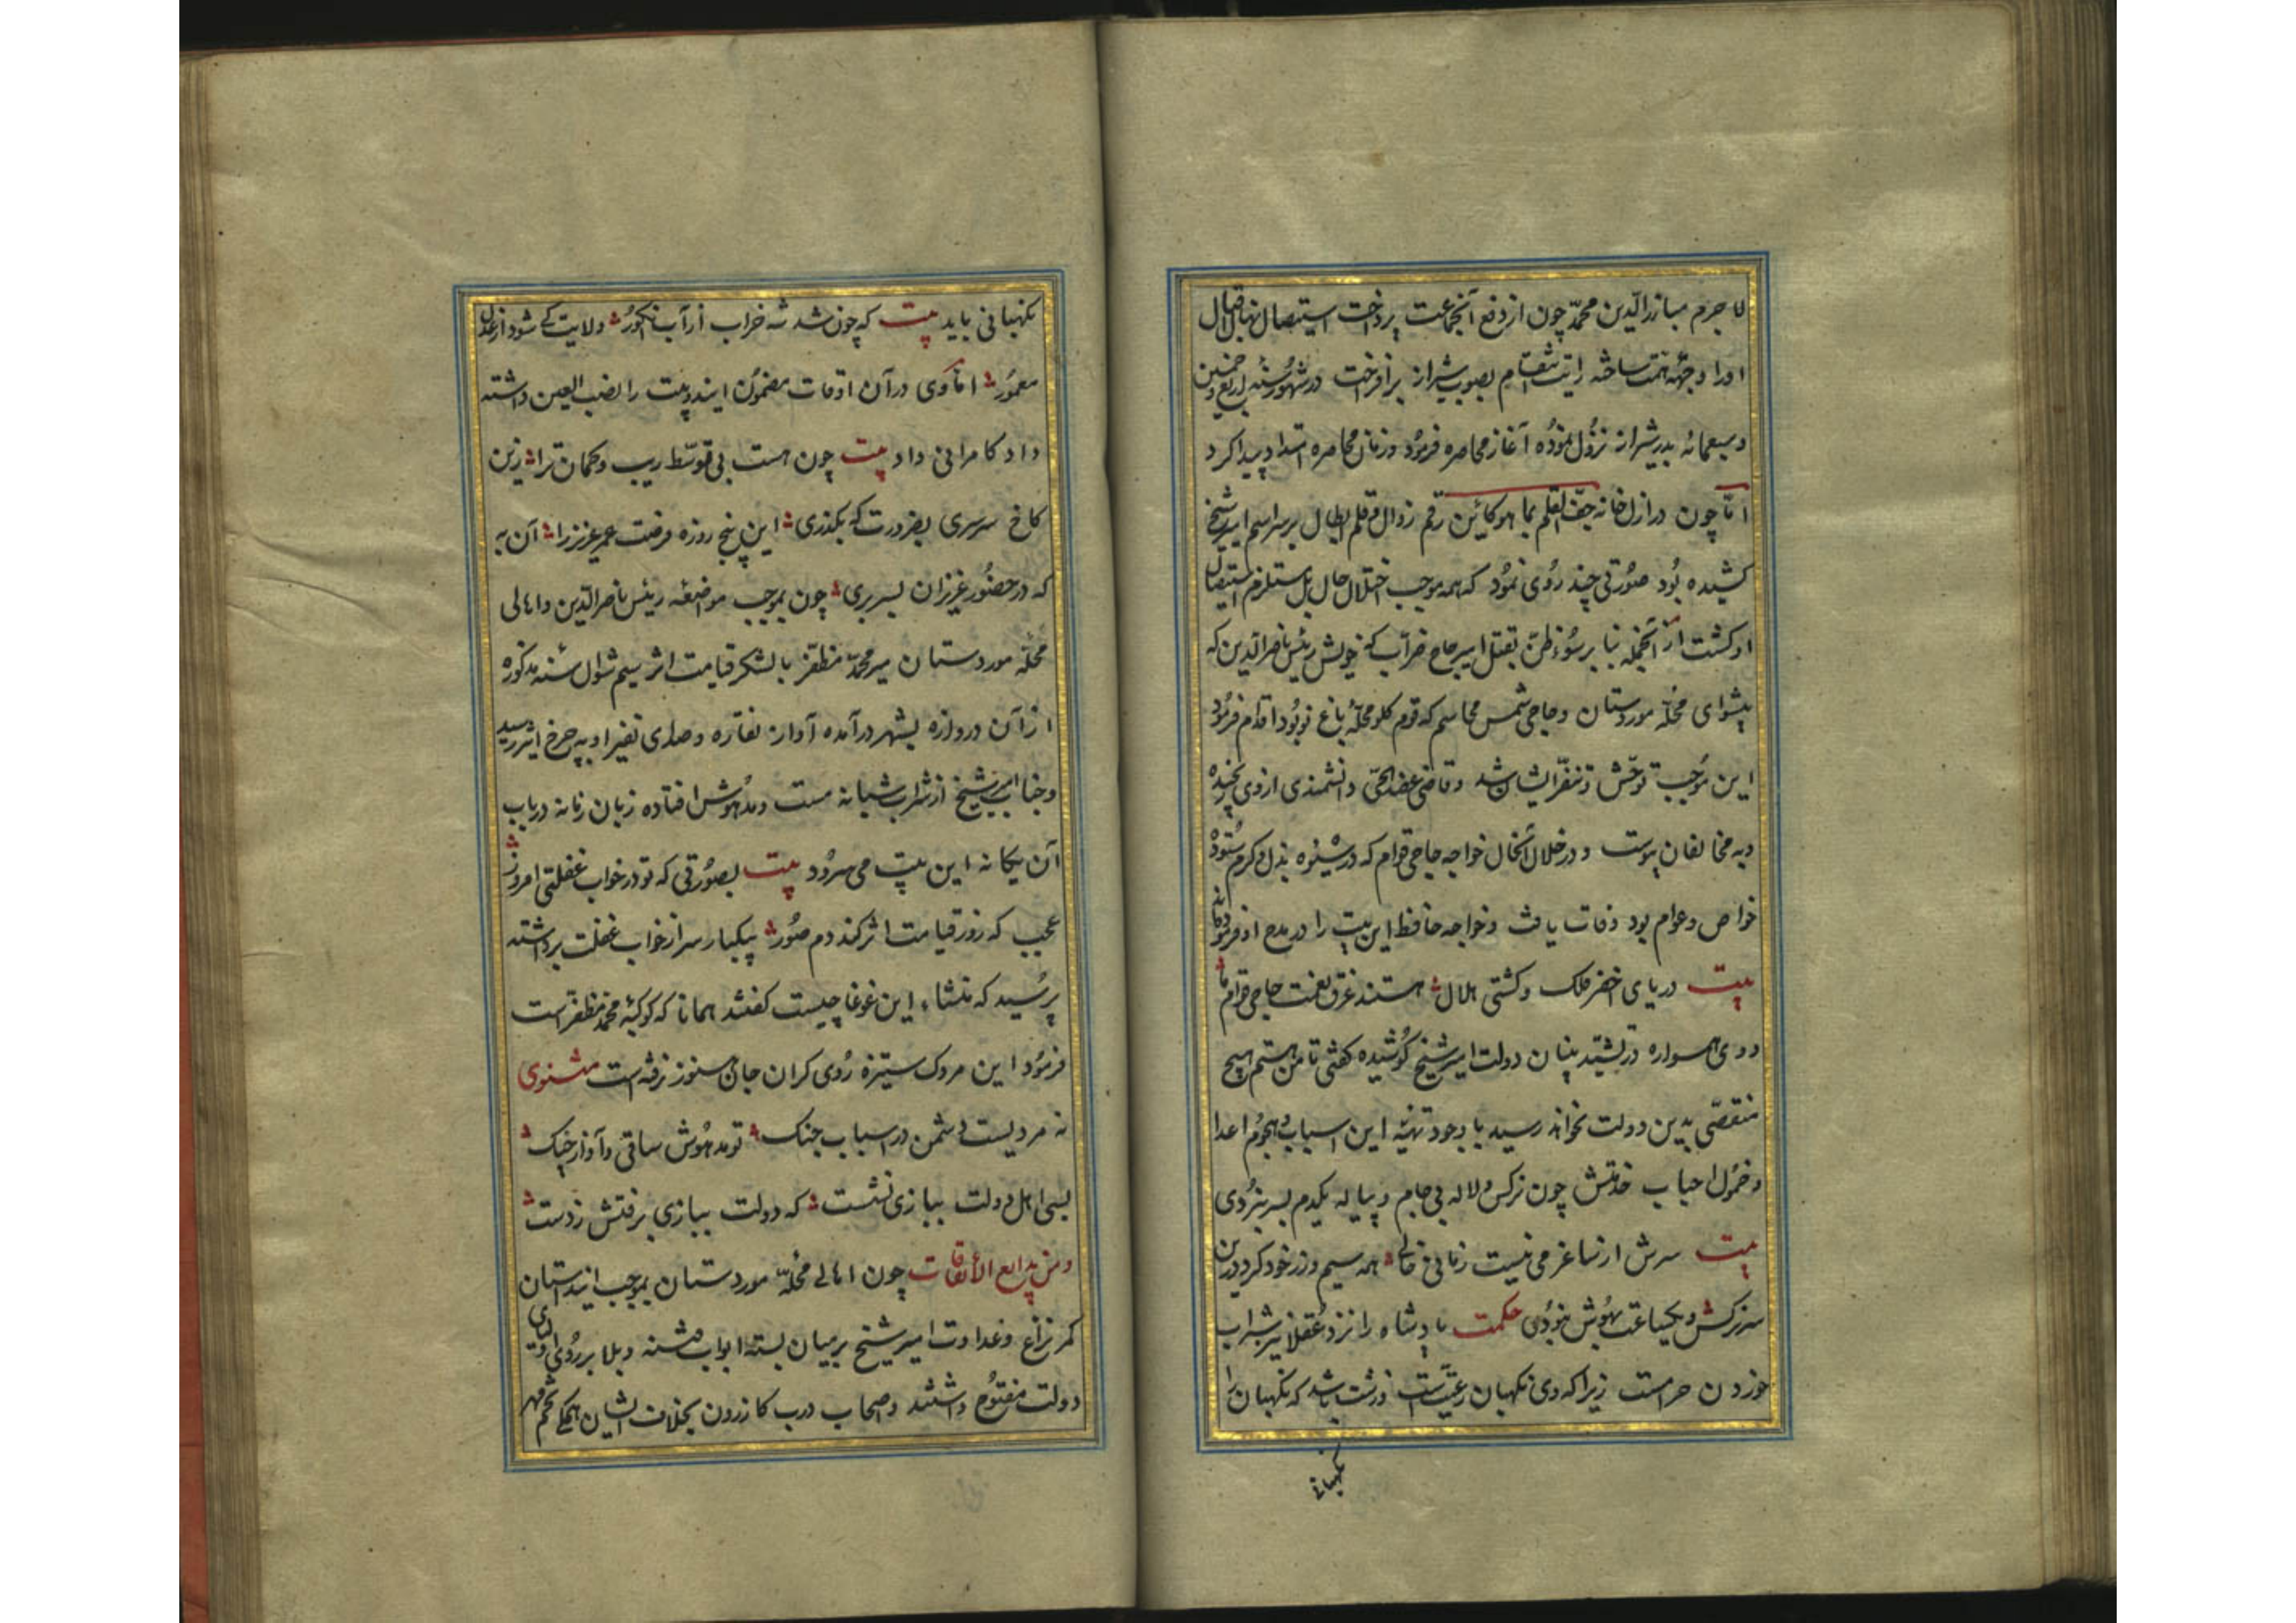 لا جرم مبارزالدین محمد چون از دفع آنجماعت پرداخت استیصال نهال اقبال
اورا وجهه همت ساخته رایت انتقام بصوب شیراز برافراخت در شهور سنه اربع و خمسین
و سبعمائه بدر شیراز نزول نموده آغاز محاصره فرمود و زمان محاصره امتداد پیدا کرد
اما چون در ازل خانه جف القلم بما هو کائن رقم زوال و قلم ابطال بر سر اسم امیر شیخ
کشیده بود صورتی چند روی نمود که همه موجب اختلال حال بل مستلزم استیصال
او کشت از آنجمله بنا بر سوء ظن بقتل امیر حاج ضراب که خویش رئیس ناصرالدین که
پیشوای محله موردستان و حاجی شمس محاسم که قوم کلو محله باغ نو بود اقدام فرمود
این موجب توحش و تنفر ایشان شد و قاضی عضد الحق دانشمندی ازوی رنجیده
دبه مخالفان پیوست و در خلال آنحال خواجه حاجی قوام که در شیوه بذل و کرم ستوده
خواص و عوام بود وفات یافت و خواجه حافظ این بیت را در مدح او فرموده
بیت دریای اخضر فلک و کشتی هلال هستند غرق نعمت حاجی قوام ما
و وی همواره در تشیید بنیان دولت امیر شیخ کوشیده کفتی تا من هستم هیچ
منقصی بدین دولت نخواهد رسید با وجود تهیه این اسباب و هجوم اعدا
و خمول احباب خدمتش چون نرکس و لاله بی جام و پیاله یکدم بسر نبردی
بیت سرش از ساغر می نیست زمانی خالی همه سیم و زر خود کرد درین
سر نرکس و یکساعت بهوش نبودی حکمت پادشاه را نزد عقلا نیز شراب
خوردن حرامست زیرا که وی نکهبان رعیتست و زشت باشد که نکهبان را
نکهبانی
نکهبانی باید بیت که چون شد شه خراب از آب انکور ولایت کی شود از عدل
معمور اما وی در آن اوقات مضمون ایندو بیت را نصب العین داشته
داد کامرانی داد بیت چون هست بی توسط ریب و کمان ترا زین
کاخ سرسری بضرورت که بکذری این پنج روزه فرصت عمر عزیز را آن به
که در حضور عزیزان بسر بری چون بموجب مواضعه رئیس ناصرالدین و اهالی
محله موردستان میر محمد مظفر با لشکر قیامت اثر سیم شوال سنه مذکوره
از آن دروازه بشهر درآمده آواز نقاره و صدای نفیر او به چرخ اثیر رسید
و جناب امیر شیخ از شراب شبانه مست و مدهوش افتاده زبان زمانه درباب
آن یکانه این بیت می سرود بیت بصورتی که تو در خواب غفلتی امروز
عجب که روز قیامت اثر کند دم صور بیکبار سر از خواب غفلت برداشته
پرسید که منشاء این غوغا چیست کفتند همانا که کوکبه محمد مظفر است
فرمود این مردک ستیزه روی کران جان هنوز نرفته است مثنوی
نه مردیست دشمن در اسباب جنک تو مدهوش ساقی و آواز چنک
بسی اهل دولت ببازی نشست که دولت ببازی برفتش ز دست
ومن بدایع الاتفاقات چون اهالی محله موردستان بموجب ایندستان
کمر نزاع و عداوت امیر شیخ بر میان بسته ابواب فتنه و بلا بر روی
دولت مفتوح داشتند و اصحاب درب کازرون بخلاف ایشان همکی تخم مهر